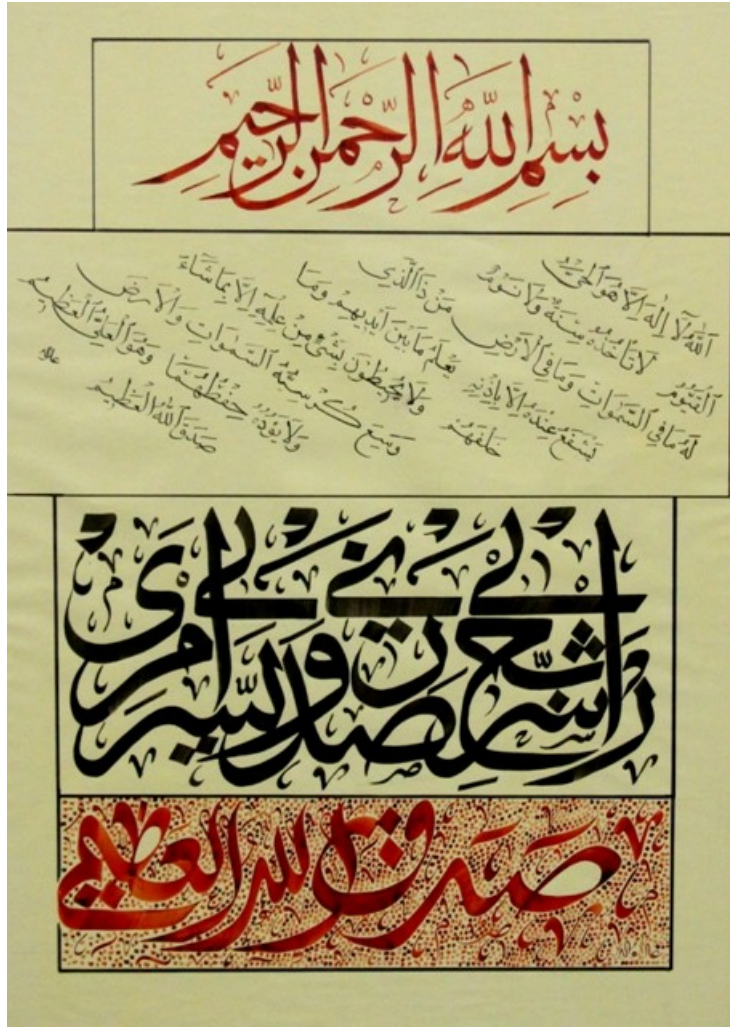 بِسْمِ اللَّهِ الرَّحْمَنِ الرَّحِيمِ
اَللّٰهُ لَا إِلٰهَ إِلَّا هُوَ الْحَيُّ
الْقَيُّومُ لَا تَأْخُذُهُ سِنَةٌ وَلَا نَوْمٌ
لَهُ مَا فِي السَّمَوَاتِ وَمَا فِي الْأَرْضِ مَنْ ذَا الَّذِي
يَشْفَعُ عِنْدَهُ إِلَّا بِإِذْنِهِ يَعْلَمُ مَا بَيْنَ أَيْدِيهِمْ وَمَا
خَلْفَهُمْ وَلَا يُحِيطُونَ بِشَيْءٍ مِنْ عِلْمِهِ إِلَّا بِمَا شَاءَ
وَسِعَ كُرْسِيُّهُ السَّمَوَاتِ وَالْأَرْضَ
وَلَا يَؤُدُهُ حِفْظُهُمَا وَهُوَ الْعَلِيُّ الْعَظِيمُ
صَدَقَ اللّٰهُ الْعَظِيمُ
رب اشرح لي صدري ويسر لي أمري
صدق الله العظيم